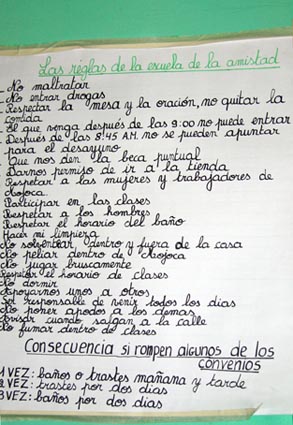 Las reglas de la escuela de la amistad
No maltratar
No entrar drogas
Respectar la mesa y la oración, no quitar la
comida
El que venga después de las 9:00 no puede entrar
Después de las 8:45 AM. no se pueden apuntar
para el desayuno
Que nos den la beca puntual
Darnos permiso de ir a la tienda
Respetar a las mujeres y trabajadores de
Mojoca.
Participar en las clases
Respetar a los hombres
Respetar el horario del baño
Hacer mi limpieza
No solventear dentro y fuera de la casa
No peliar dentro de Mojoca
No jugar buscamente
Respetar el horario de clases
No dormir
Apoyarnos unos a otros
Ser responsable de venir todos los dias
No poner apodos a los demas
Avisar cuando salgan a la calle
No fumar dentro de clases
Consecuencia si rompen algunos de los
convenios
1 VEZ: baños o trastes mañana y tarde
2 VEZ: trastes por dos dias
3 VEZ: baños por dos dias